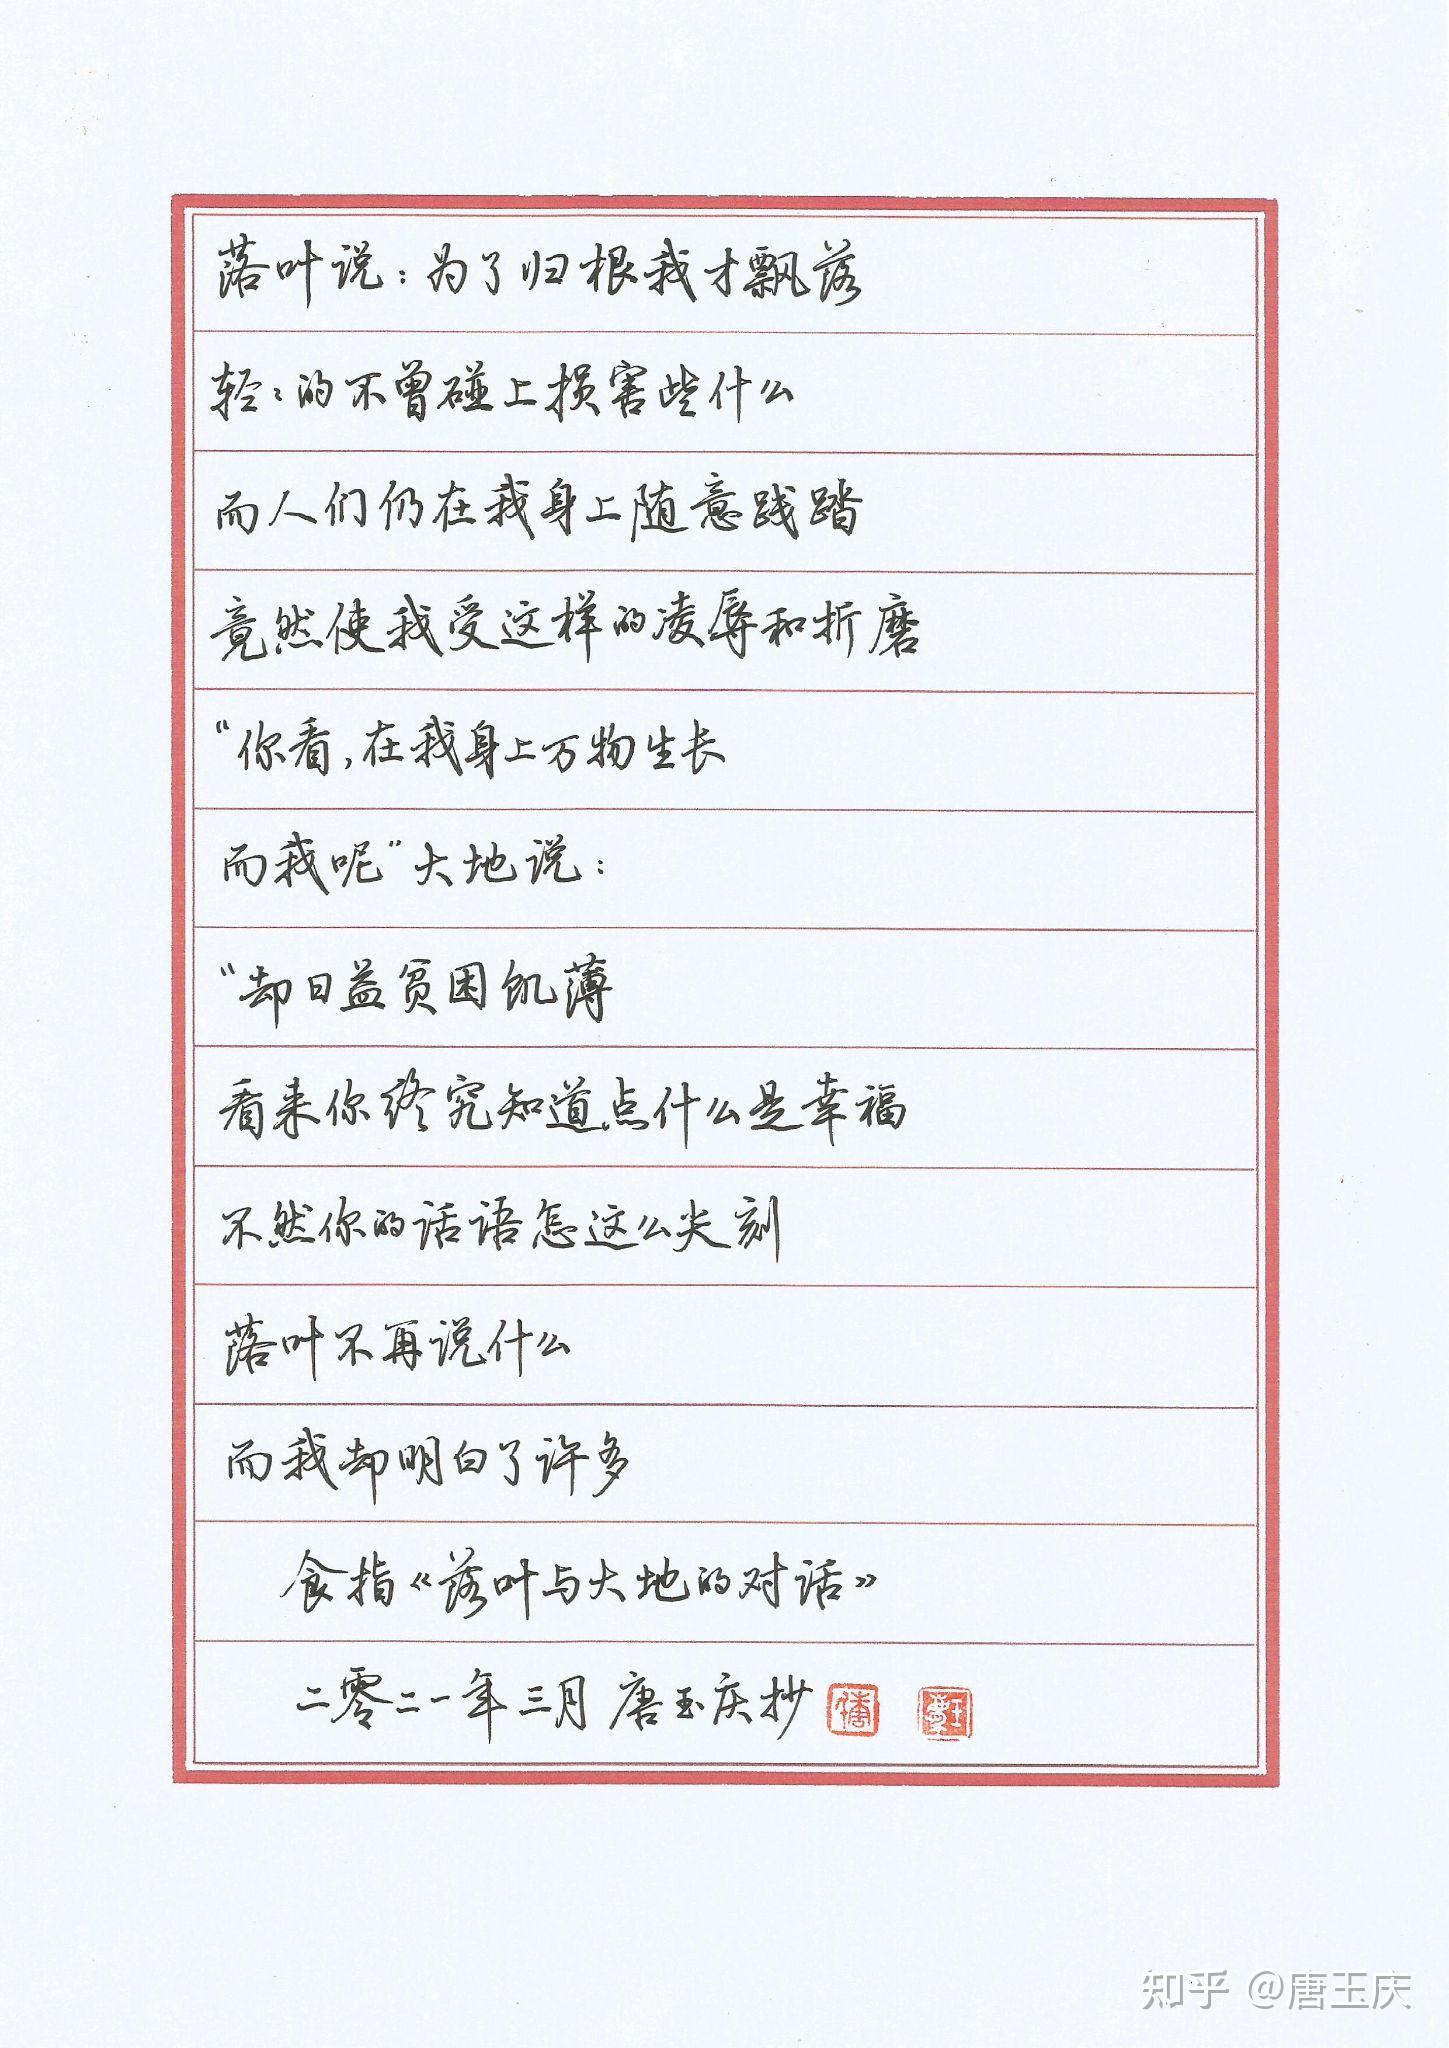 落叶说：为了归根我才飘落
轻：的不曾碰上损害些什么
而人们仍在我身上随意践踏
竟然使我受这样的凌辱和折磨
“你看，在我身上万物生长
而我呢”大地说：
“却日益贫困饥薄
看来你终究知道点什么是幸福
不然你的话语怎这么尖刻
落叶不再说什么
而我却明白了许多
食指《落叶与大地的对话》
二零二一年三月 唐玉庆抄
知乎 @唐玉庆